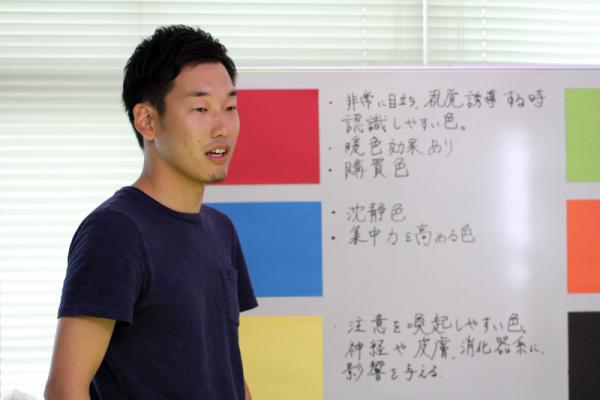 ・非常に目立ち、視覚誘導する時
認識しやすい色。
・暖色効果あり
・購買色
・沈静色
・集中力を高める色
・注意を喚起しやすい色、
・神経や皮膚、消化器系に、
影響を与える.